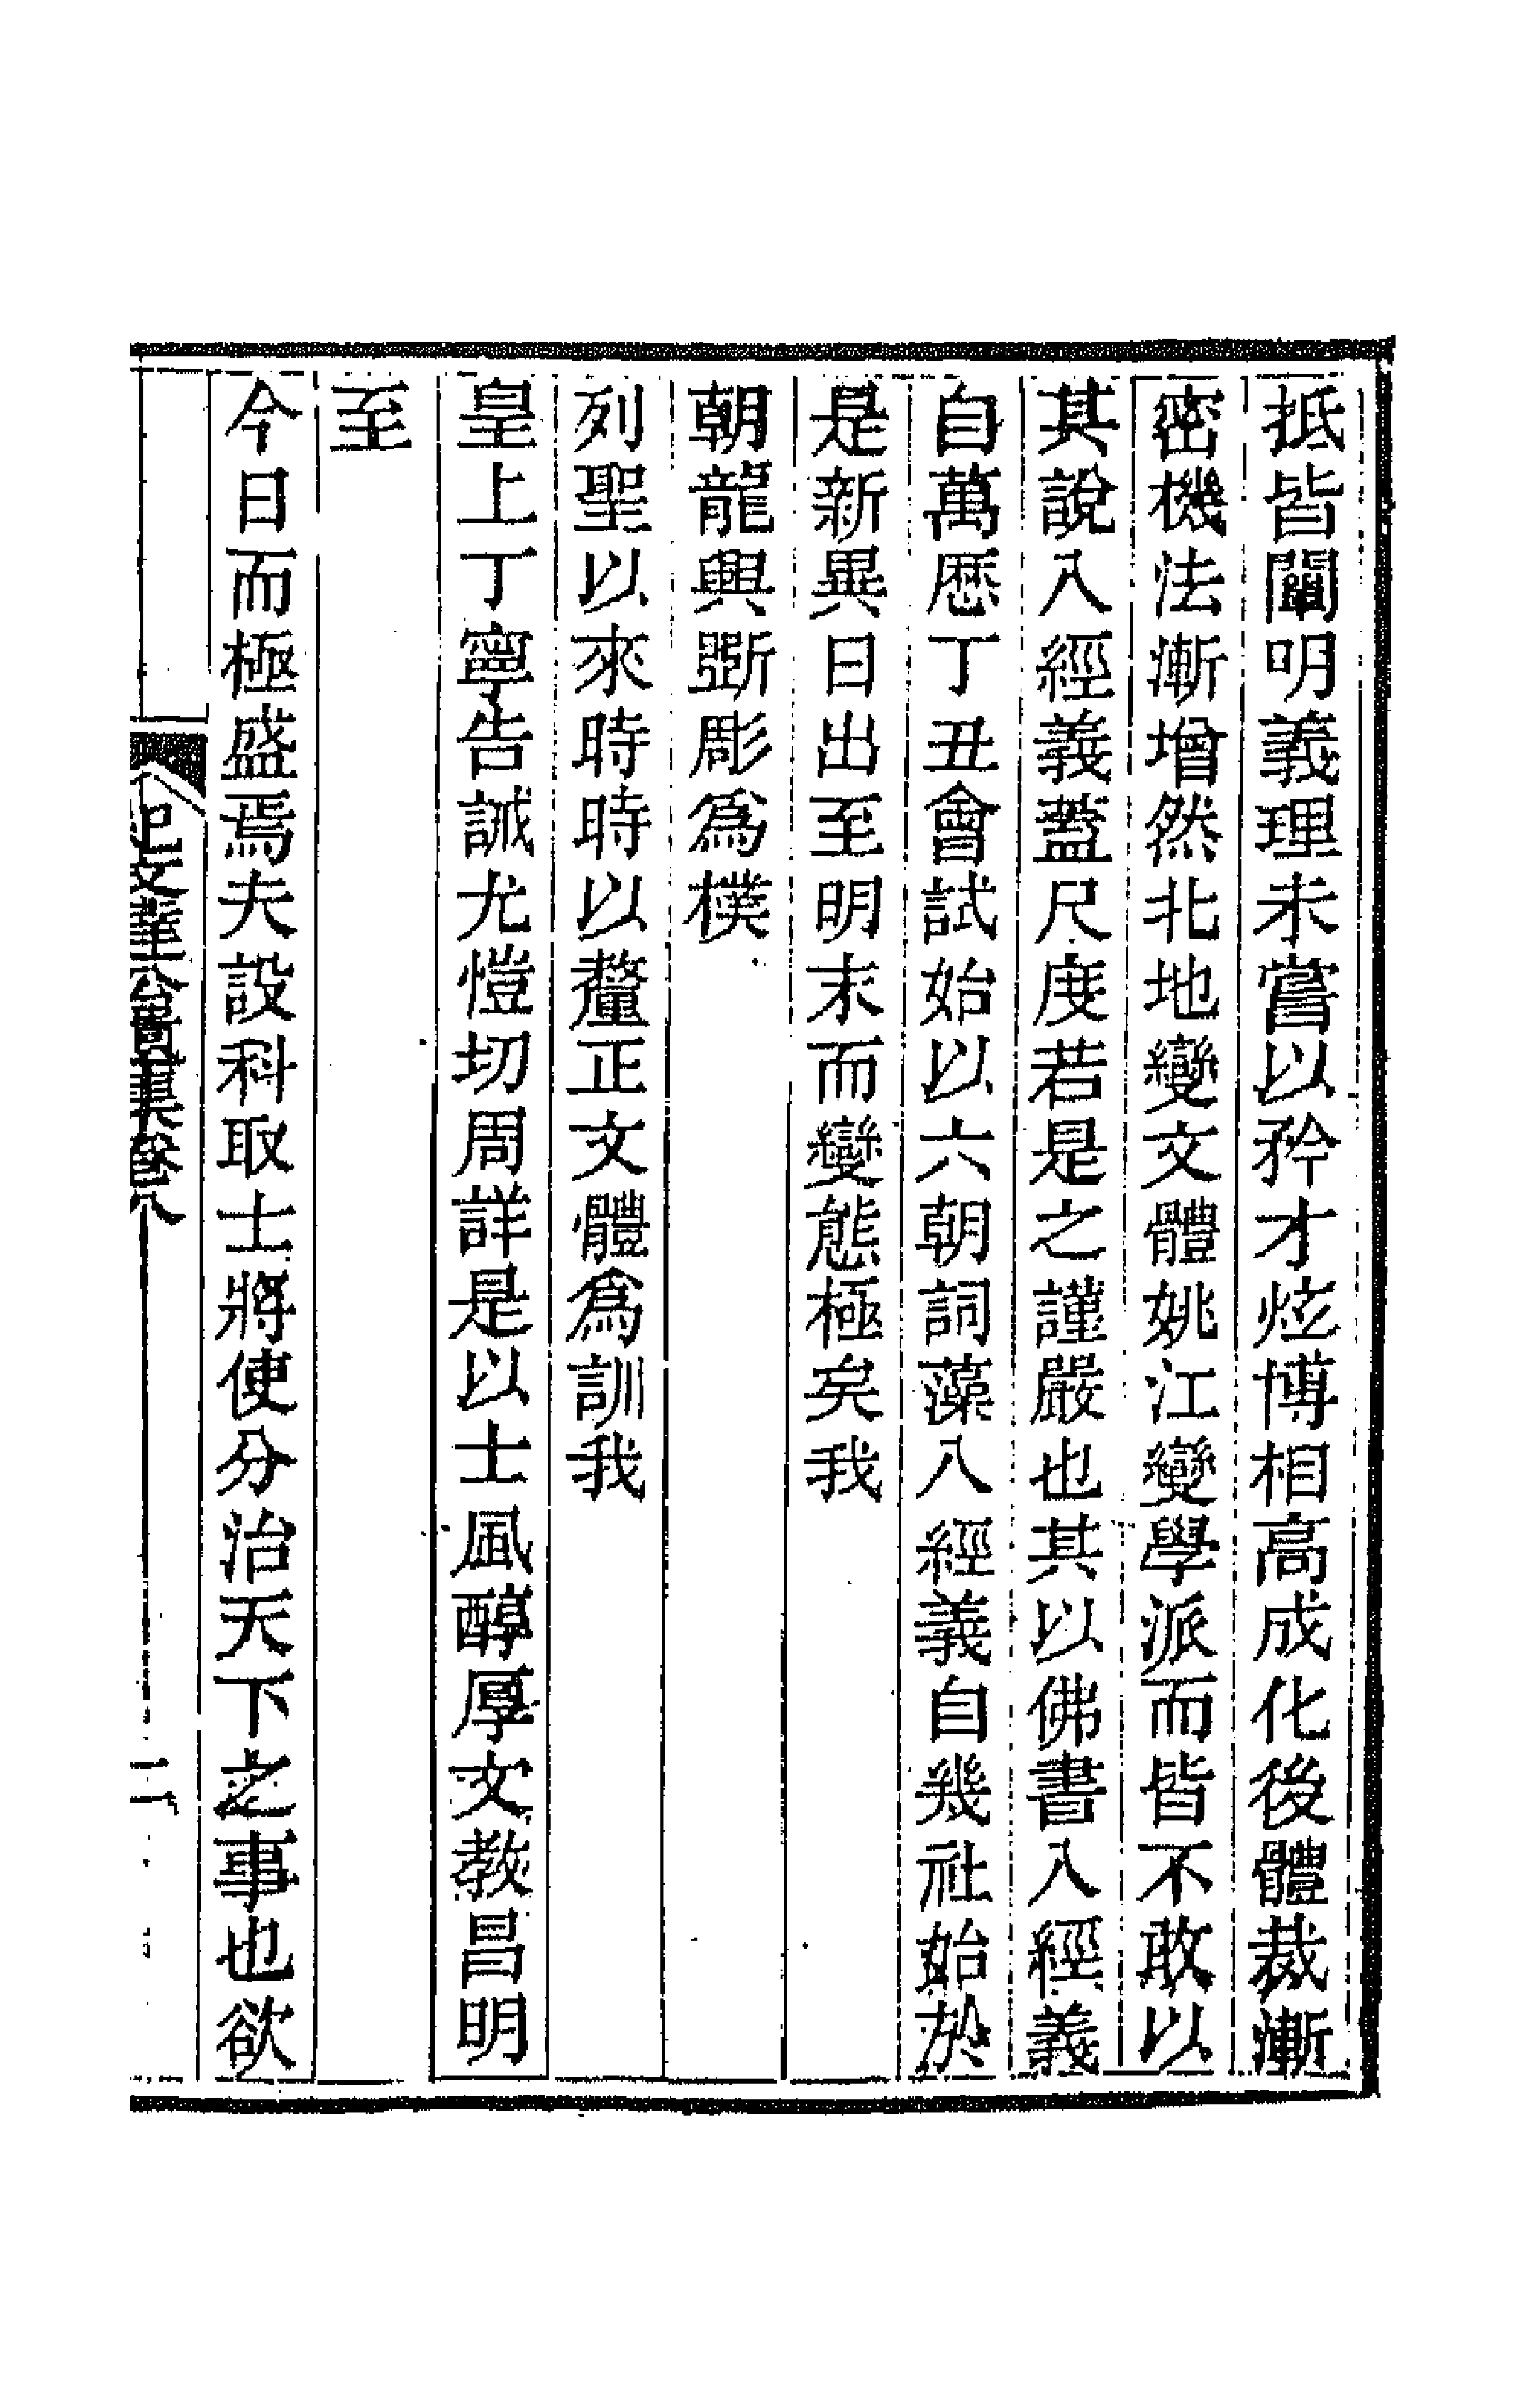 抵皆闡明義理未嘗以矜才炫博相高成化後體裁漸
密機法漸增然北地變文體姚江變學派而皆不敢以
其說入經義蓋尺度若是之謹嚴也其以佛書入經義
自萬厯丁丑會試始以六朝詞藻入經義自幾社始於
是新異日出至明末而變態極矣我
朝龍興斲彫爲樸
列聖以來時時以釐正文體爲訓我
皇上丁寧告誡尤愷切周詳是以士風醇厚文教昌明
至
今日而極盛焉夫設科取士將使分治天下之事也欲
紀文達公遺集卷八
二